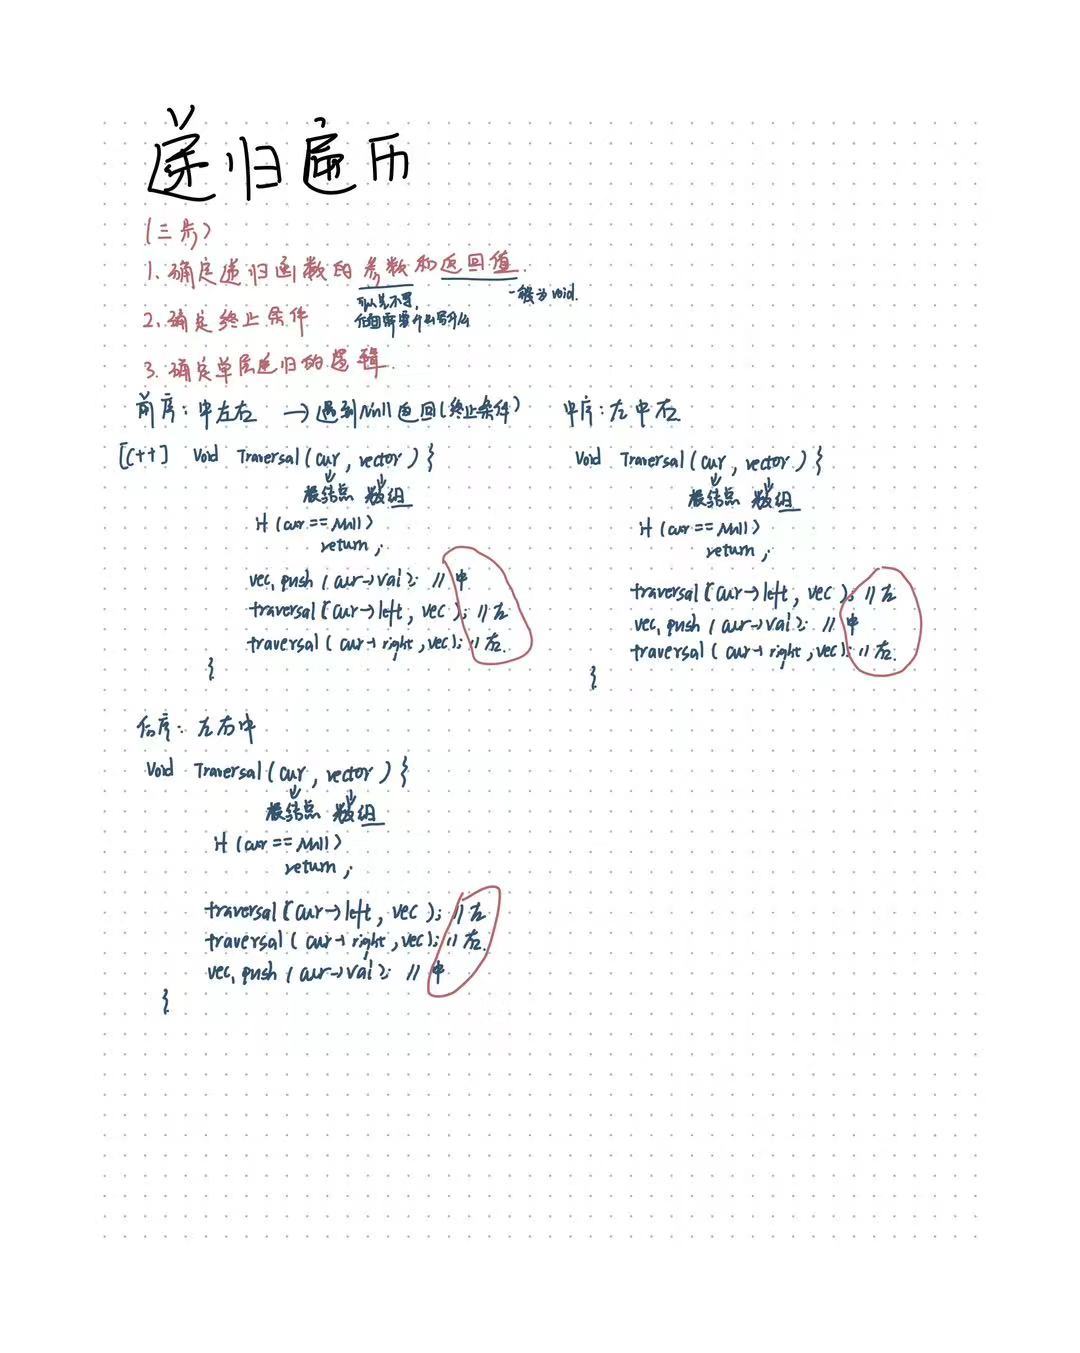 递归遍历
(三步)
1. 确定递归函数的参数和返回值.
可以先不写,
后面需要什么写什么
一般为void.
2. 确定终止条件
3. 确定单层递归的逻辑.
前序: 中左右 → 遇到Null返回(终止条件)
[C++] Void Traversal(cur, vector){
根结点 数组
if (cur == Null)
return;
vec.push(cur→val); //中
traversal(cur→left, vec); //左
traversal(cur→right, vec); //右.
}
中序: 左中右
Void Traversal(cur, vector){
根结点 数组
if (cur == Null)
return;
traversal(cur→left, vec); //左
vec.push(cur→val); //中
traversal(cur→right, vec); //右.
}
后序: 左右中
Void Traversal(cur, vector){
根结点 数组
if (cur == Null)
return;
traversal(cur→left, vec); //左
traversal(cur→right, vec); //右.
vec.push(cur→val); //中
}